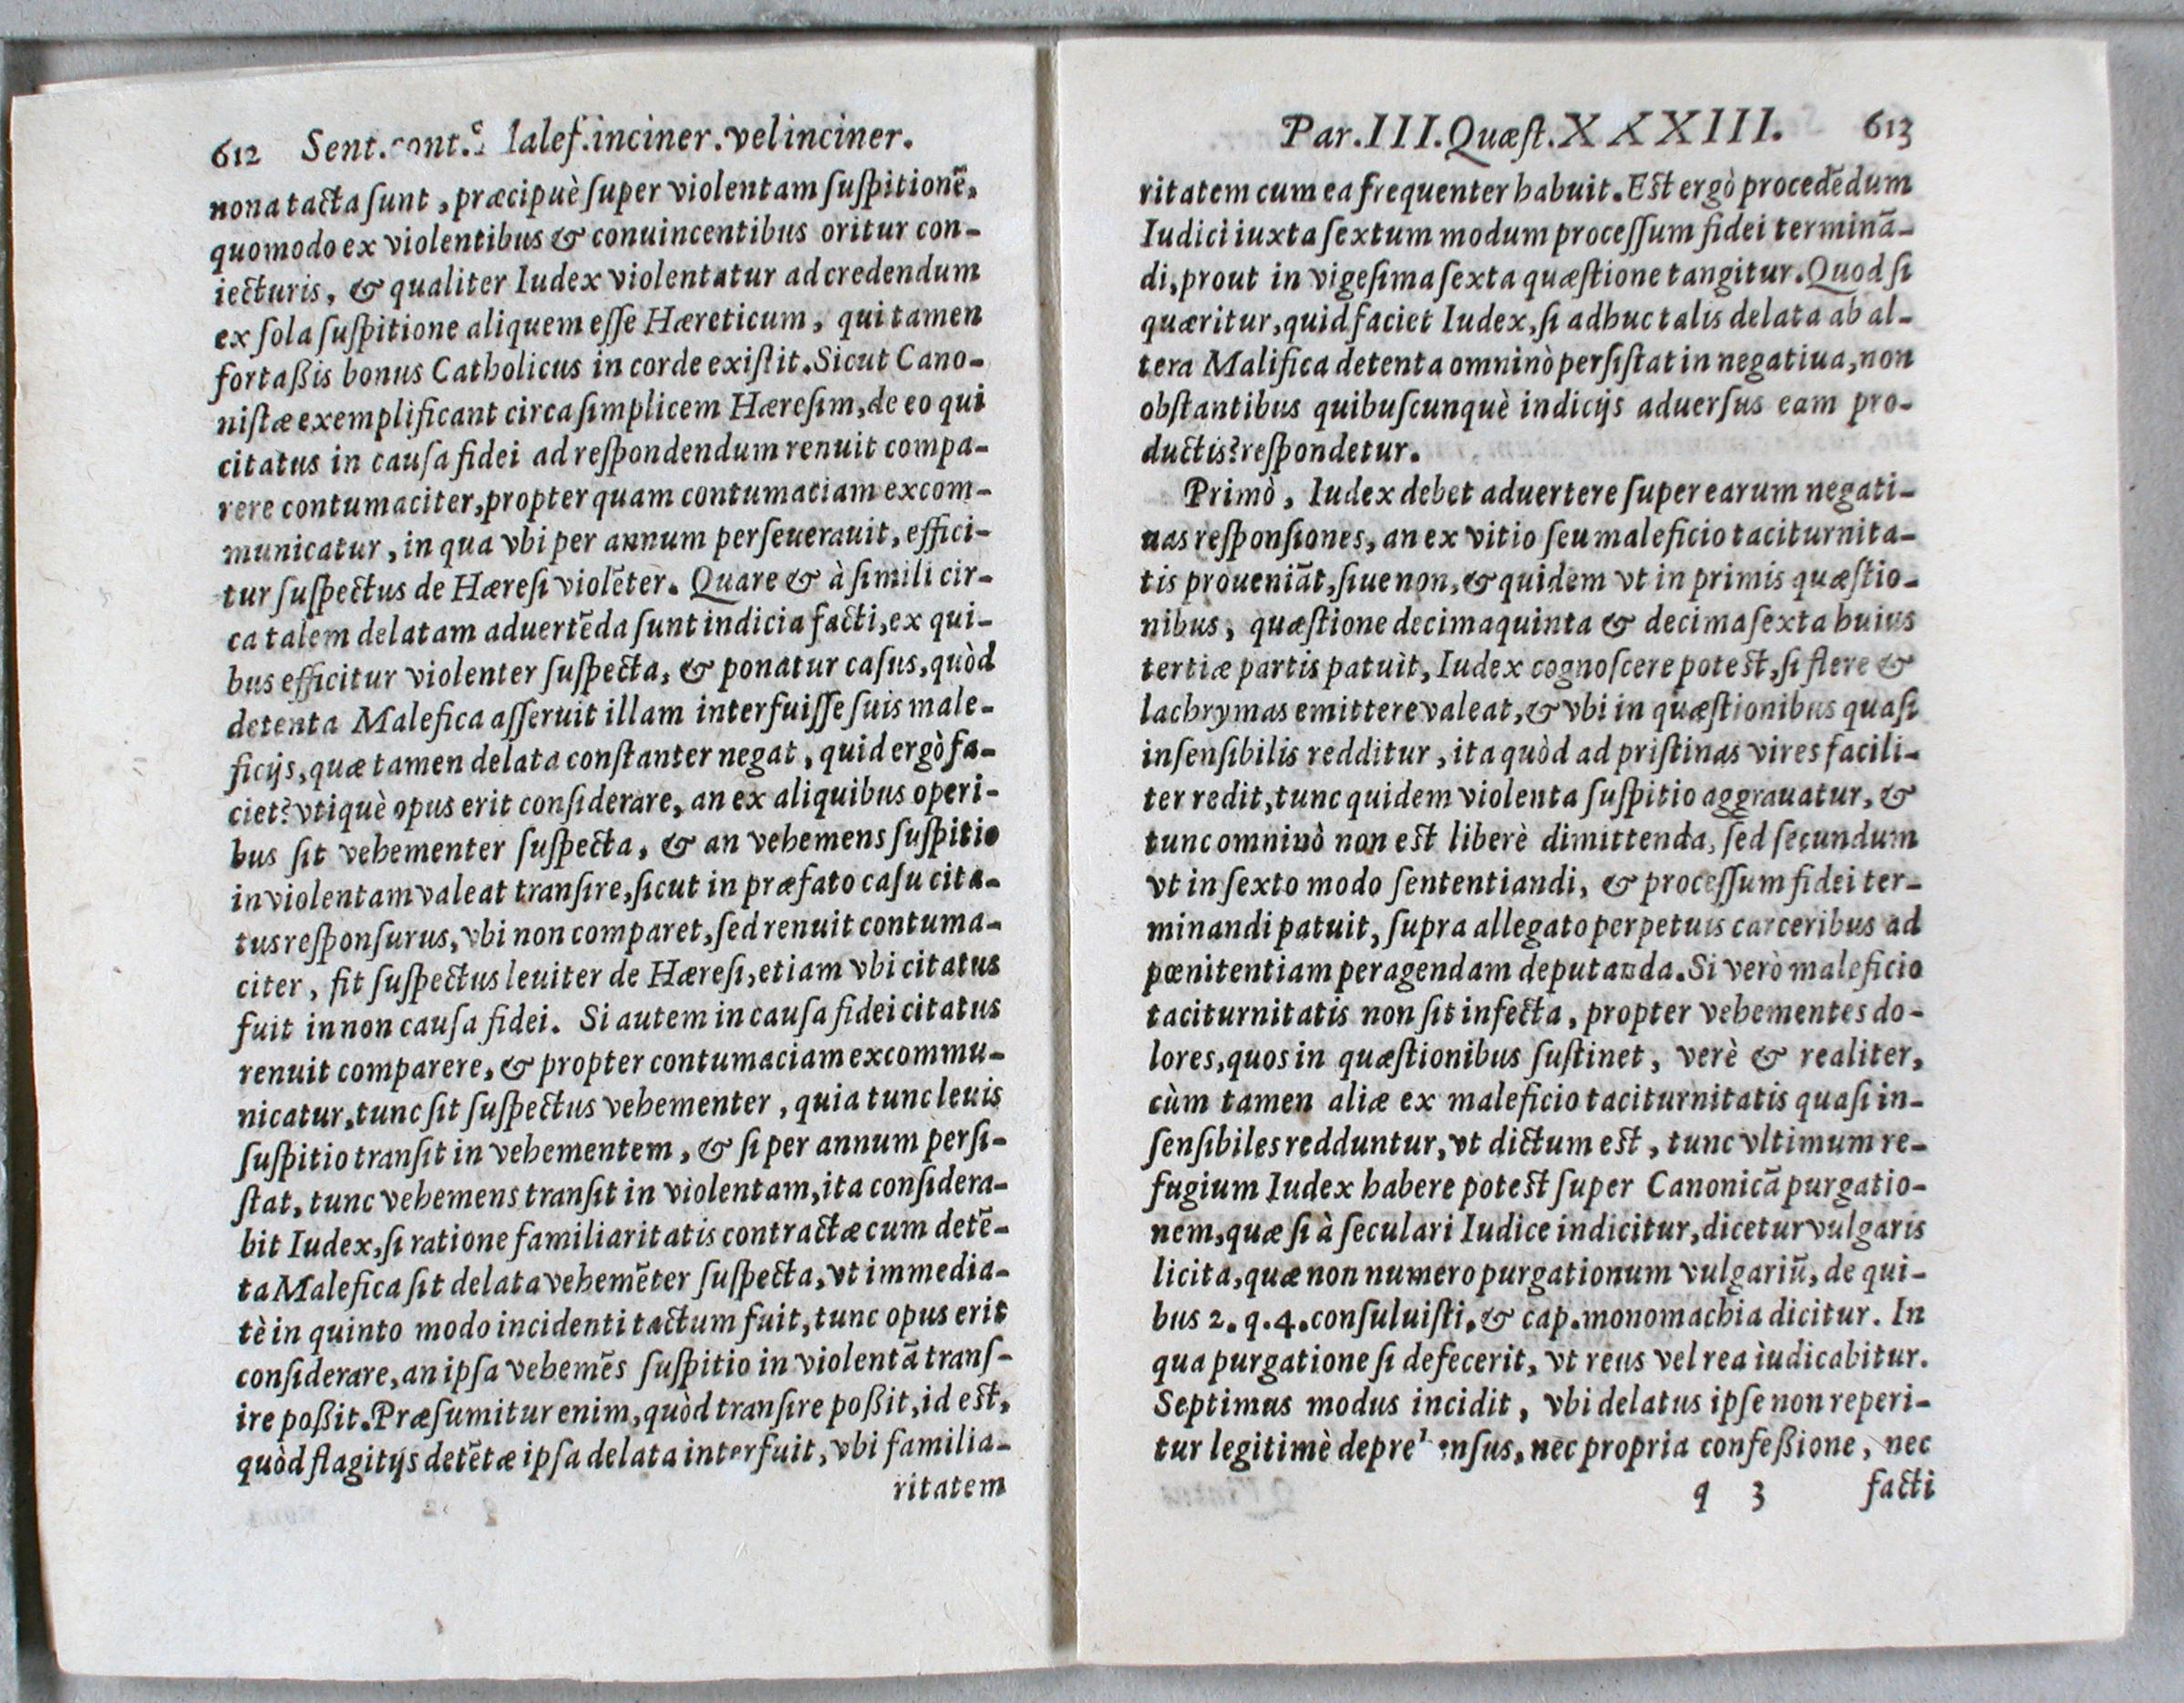 612 Sent. inciner. vel inciner.
non a tacta ſunt, præcipuè ſuper violentam ſuſpitionẽ,
quomodo ex violentibus & conuincentibus oritur con-
iecturis, & qualiter Iudex violentatur ad credendum
ex ſola ſuſpitione aliquem eſſe Hæreticum, qui tamen
fortaßis bonus Catholicus in corde exiſtit. Sicut Cano-
niſtæ exemplificant circa ſimplicem Hæreſim, de eo qui
citatus in cauſa fidei ad reſpondendum renuit compa-
rere contumaciter, propter quam contumaciam excom-
municatur, in qua vbi per annum perſeuerauit, effici-
tur ſuſpectus de Hæreſi violẽter. Quare & à ſimili cir-
ca talem delatam aduertẽda ſunt indicia facti, ex qui-
bus efficitur violenter ſuſpecta, & ponatur caſus, quòd
detenta Malefica aſſeruit illam interfuiſſe ſuis male-
ficijs, quæ tamen delata conſtanter negat, quid ergò fa-
ciet? vtiquè opus erit conſiderare, an ex aliquibus operi-
bus ſit vehementer ſuſpecta, & an vehemens ſuſpitio
in violentam valeat tranſire, ſicut in præfato caſu cita-
tus reſponſurus, vbi non comparet, ſed renuit contuma-
citer, fit ſuſpectus leuiter de Hæreſi, etiam vbi citatus
fuit in non cauſa fidei. Si autem in cauſa fidei citatus
renuit comparere, & propter contumaciam excommu-
nicatur, tunc ſit ſuſpectus vehementer, quia tunc leuis
ſuſpitio tranſit in vehementem, & ſi per annum perſi-
ſtat, tunc vehemens tranſit in violentam, ita conſidera-
bit Iudex, ſi ratione familiaritatis contractæ cum detẽ-
ta Malefica ſit delata vehemẽter ſuſpecta, vt immedia-
tè in quinto modo incidenti tactum fuit, tunc opus erit
conſiderare, an ipſa vehemẽs ſuſpitio in violentã tranſ-
ire poßit. Præſumitur enim, quòd tranſire poßit, id eſt,
quòd flagitijs detẽtæ ipſa delata interfuit, vbi familia-
ritatem
Par. III. Quæſt. XXXIII. 613
ritatem cum ea frequenter habuit. Eſt ergò procedẽdum
Iudici iuxta ſextum modum proceſſum fidei terminã-
di, prout in vigeſima ſexta quæſtione tangitur. Quod ſi
quæritur, quid faciet Iudex, ſi adhuc talis delata ab al-
tera Malifica detenta omninò perſiſtat in negatiua, non
obſtantibus quibuſcunquè indicijs aduerſus eam pro-
ductis? reſpondetur.
Primò, Iudex debet aduertere ſuper earum negati-
uas reſponſiones, an ex vitio ſeu maleficio taciturnita-
tis proueniãt, ſiue non, & quidem vt in primis quæſtio-
nibus, quæſtione decimaquinta & decimaſexta huius
tertiæ partis patuit, Iudex cognoſcere poteſt, ſi flere &
lachrymas emittere valeat, & vbi in quæſtionibus quaſi
inſenſibilis redditur, ita quòd ad priſtinas vires facili-
ter redit, tunc quidem violenta ſuſpitio aggrauatur, &
tunc omninò non eſt liberè dimittenda, ſed ſecundum
vt in ſexto modo ſententiandi, & proceſſum fidei ter-
minandi patuit, ſupra allegato perpetuis carceribus ad
pœnitentiam peragendam deputanda. Si verò maleficio
taciturnitatis non ſit infecta, propter vehementes do-
lores, quos in quæſtionibus ſuſtinet, verè & realiter,
cùm tamen aliæ ex maleficio taciturnitatis quaſi in-
ſenſibiles redduntur, vt dictum eſt, tunc vltimum re-
fugium Iudex habere poteſt ſuper Canonicã purgatio-
nem, quæ ſi à ſeculari Iudice indicitur, dicetur vulgaris
licita, quæ non numero purgationum vulgariũ, de qui-
bus 2. q. 4. conſuluiſti, & cap. monomachia dicitur. In
qua purgatione ſi defecerit, vt reus vel rea iudicabitur.
Septimus modus incidit, vbi delatus ipſe non reperi-
tur legitimè nec propria confeßione, nec
q 3 facti